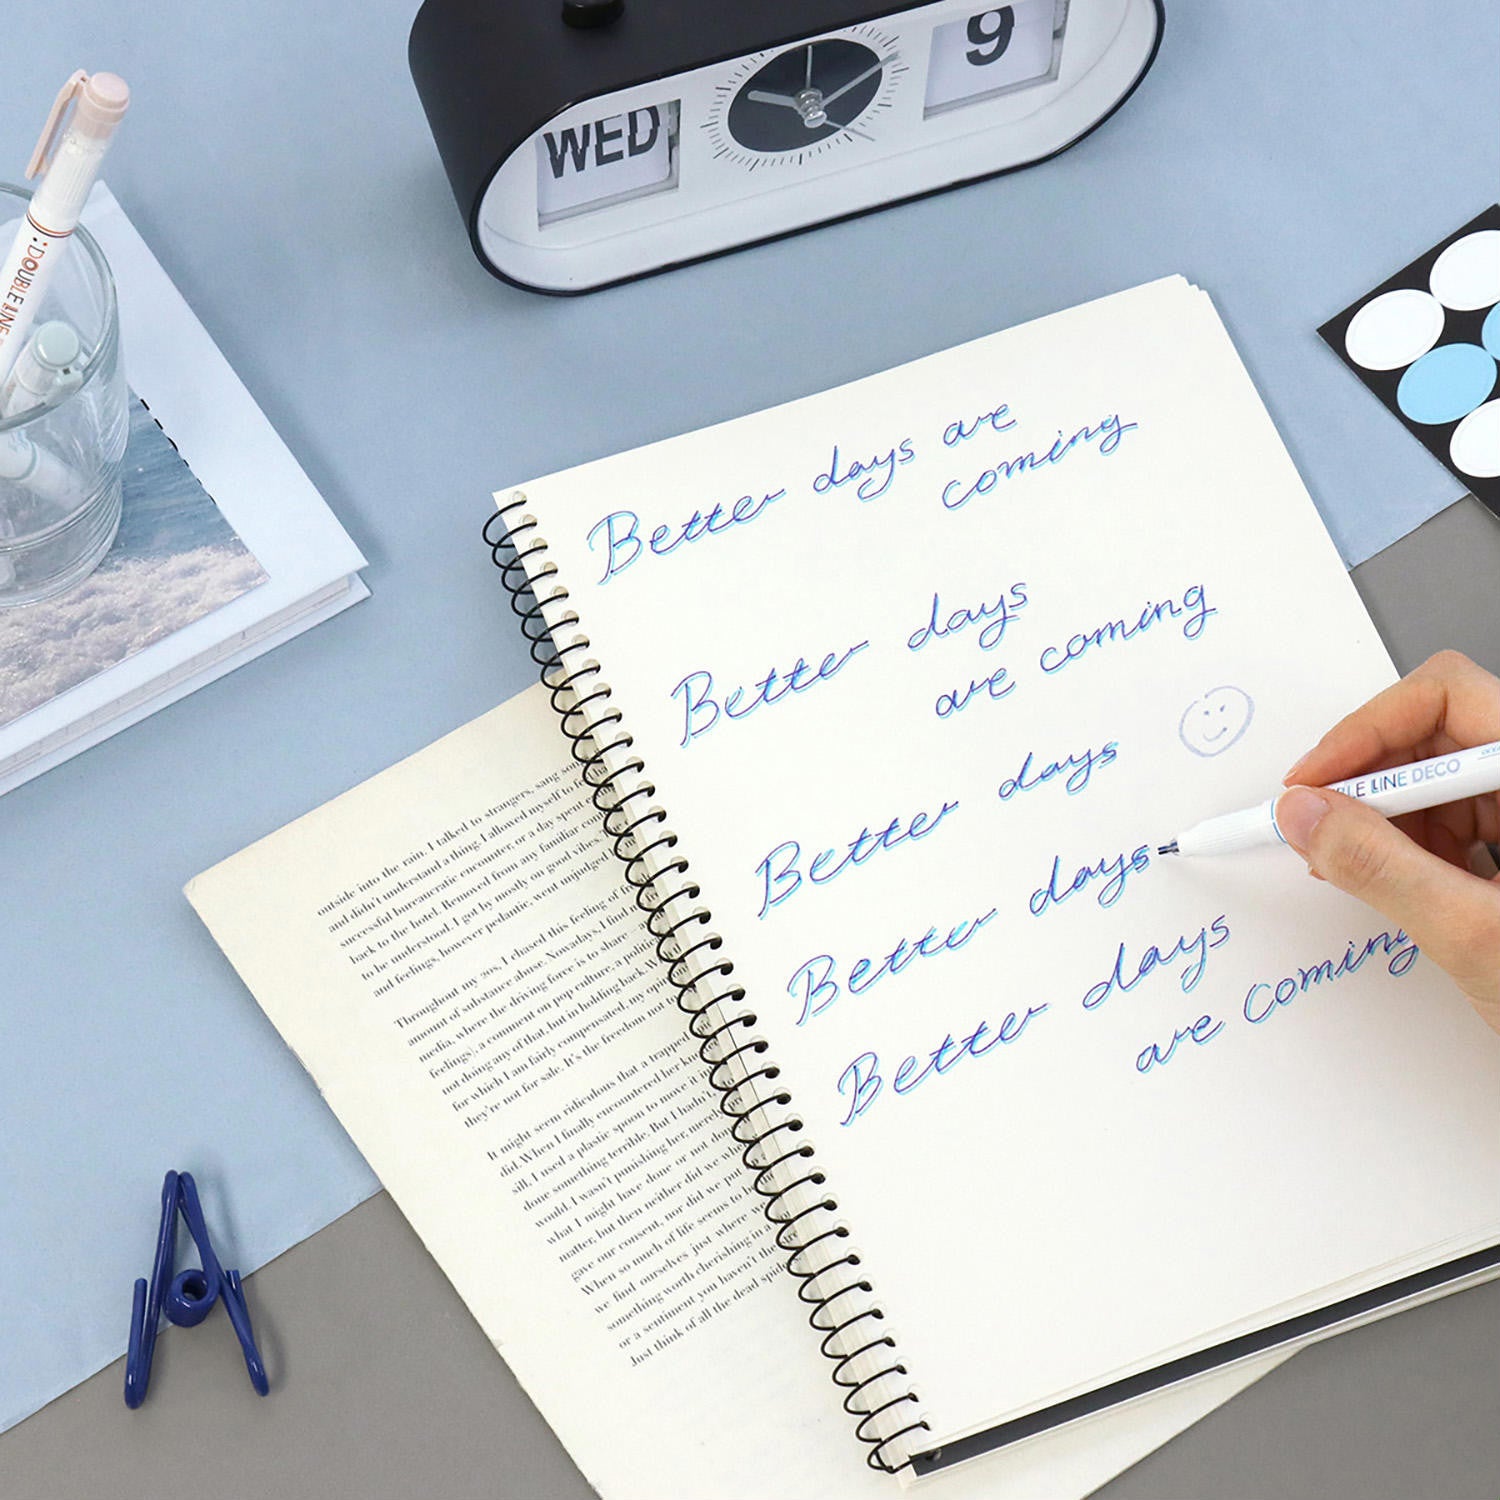 WED
9
:DOUBLE LINE
Better days are
coming
Better days
are coming
Better days
Better days
BLE LINE DECO
Better days
are coming
outside into the rain. I talked to strangers, sang
and didn't understand a thing. I allowed myself to feel
successful bureaucratic encounter, or a day spent
back to the hotel. Removed from any familiar
to be understood. I got by mostly on good vibes.
and feelings, however pedantic, went unjudged
Throughout my 20s, I chased this feeling of
amount of substance abuse. Nowadays, I find
media, where the driving force is to share
feelings), a comment on pop culture, a political
not doing any of that, but in holding back. We
for which I am fairly compensated, my
they're not for sale. It's the freedom not to
It might seem ridiculous that a trapped
did. When I finally encountered her
sill, I used a plastic spoon to move it
done something terrible. But I hadn't,
would. I wasn't punishing her, merely
what I might have done or not done
matter, but then neither did we
gave our consent, nor did we put
When so much of life seems to be
we find ourselves just where we
something worth cherishing in a
or a sentiment you haven't the
Just think of all the dead